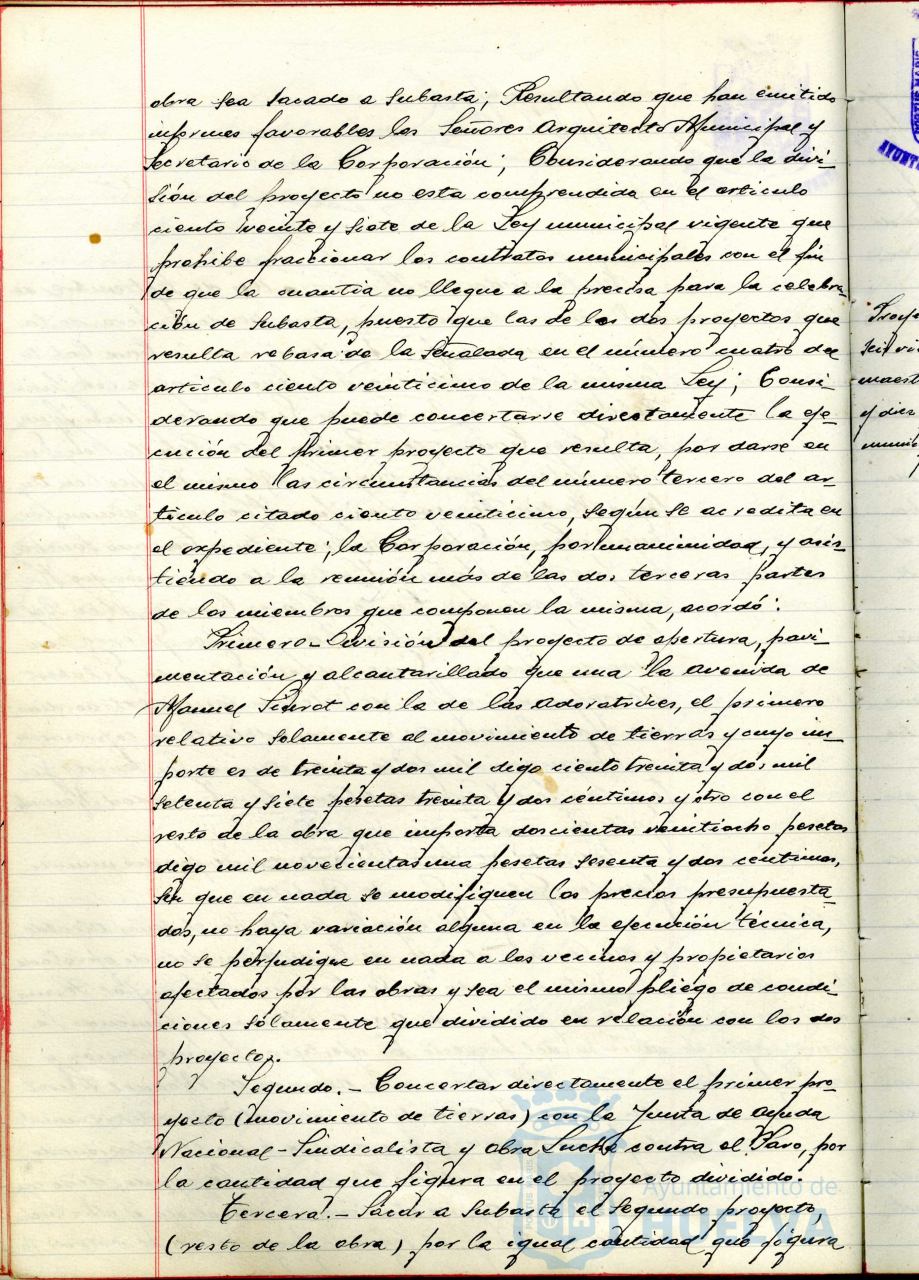 obra sea sacado a subasta; Resultando que han emitido
informes favorables los Señores Arquitecto Municipal y
Secretario de la Corporación; Considerando que la divi-
sión del proyecto no esta comprendida en el articulo
ciento veinte y siete de la Ley municipal vigente que
prohibe fraccionar los contratos municipales con el fin
de que la cuantia no llegue a la precisa para la celebra-
ción de subasta, puesto que las de los dos proyectos que
resulta rebasa de la señalada en el número cuatro del
articulo ciento veinticinco de la misma Ley; Consi-
derando que puede concertarse directamente la eje-
cución del primer proyecto que resulta, por darse en
el mismo las circunstancias del número tercero del ar-
ticulo citado ciento veinticinco, según se acredita en
el expediente; la Corporación, por unanimidad, y asis-
tiendo a la reunión más de las dos terceras partes
de los miembros que componen la misma, acordó:
Primero - División del proyecto de apertura, pavi-
mentación y alcantarillado que una la avenida de
Manuel Siurot con la de las Adoratrices, el primero
relativo solamente al movimiento de tierras y cuyo im-
porte es de treinta y dos mil digo ciento treinta y dos mil
setenta y siete pesetas treinta y dos céntimos y otro con el
resto de la obra que importa doscientas veintiocho pesetas
digo mil novecientas una pesetas sesenta y dos centimos,
sin que en nada se modifiquen los precios presupuesta-
dos, no haya variación alguna en la ejecución técnica,
no se perjudique en nada a los vecinos y propietarios
afectados por las obras y sea el mismo pliego de condi-
ciones sólamente que dividido en relación con los dos
proyectos.
Segundo. - Concertar directamente el primer pro-
yecto (movimiento de tierras) con la Junta de Ayuda
Nacional-Sindicalista y Obra Lucha contra el Paro, por
la cantidad que figura en el proyecto dividido.
Tercera. - Sacar a subasta el segundo proyecto,
(resto de la obra) por la igual cantidad que figura
Ayuntamiento de
HUELVA